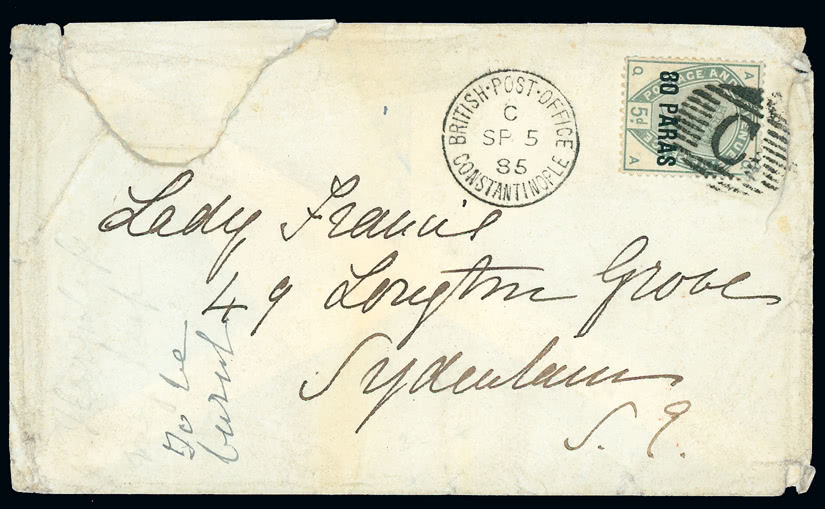 BRITISH·POST·OFFICE
C
SP 5
85
CONSTANTINOPLE
Q A
POSTAGE AND REVENUE
5d
80 PARAS
A Q
C
Lady Francis
49 Longton Grove
Sydenham
S.E.
To be
burnt